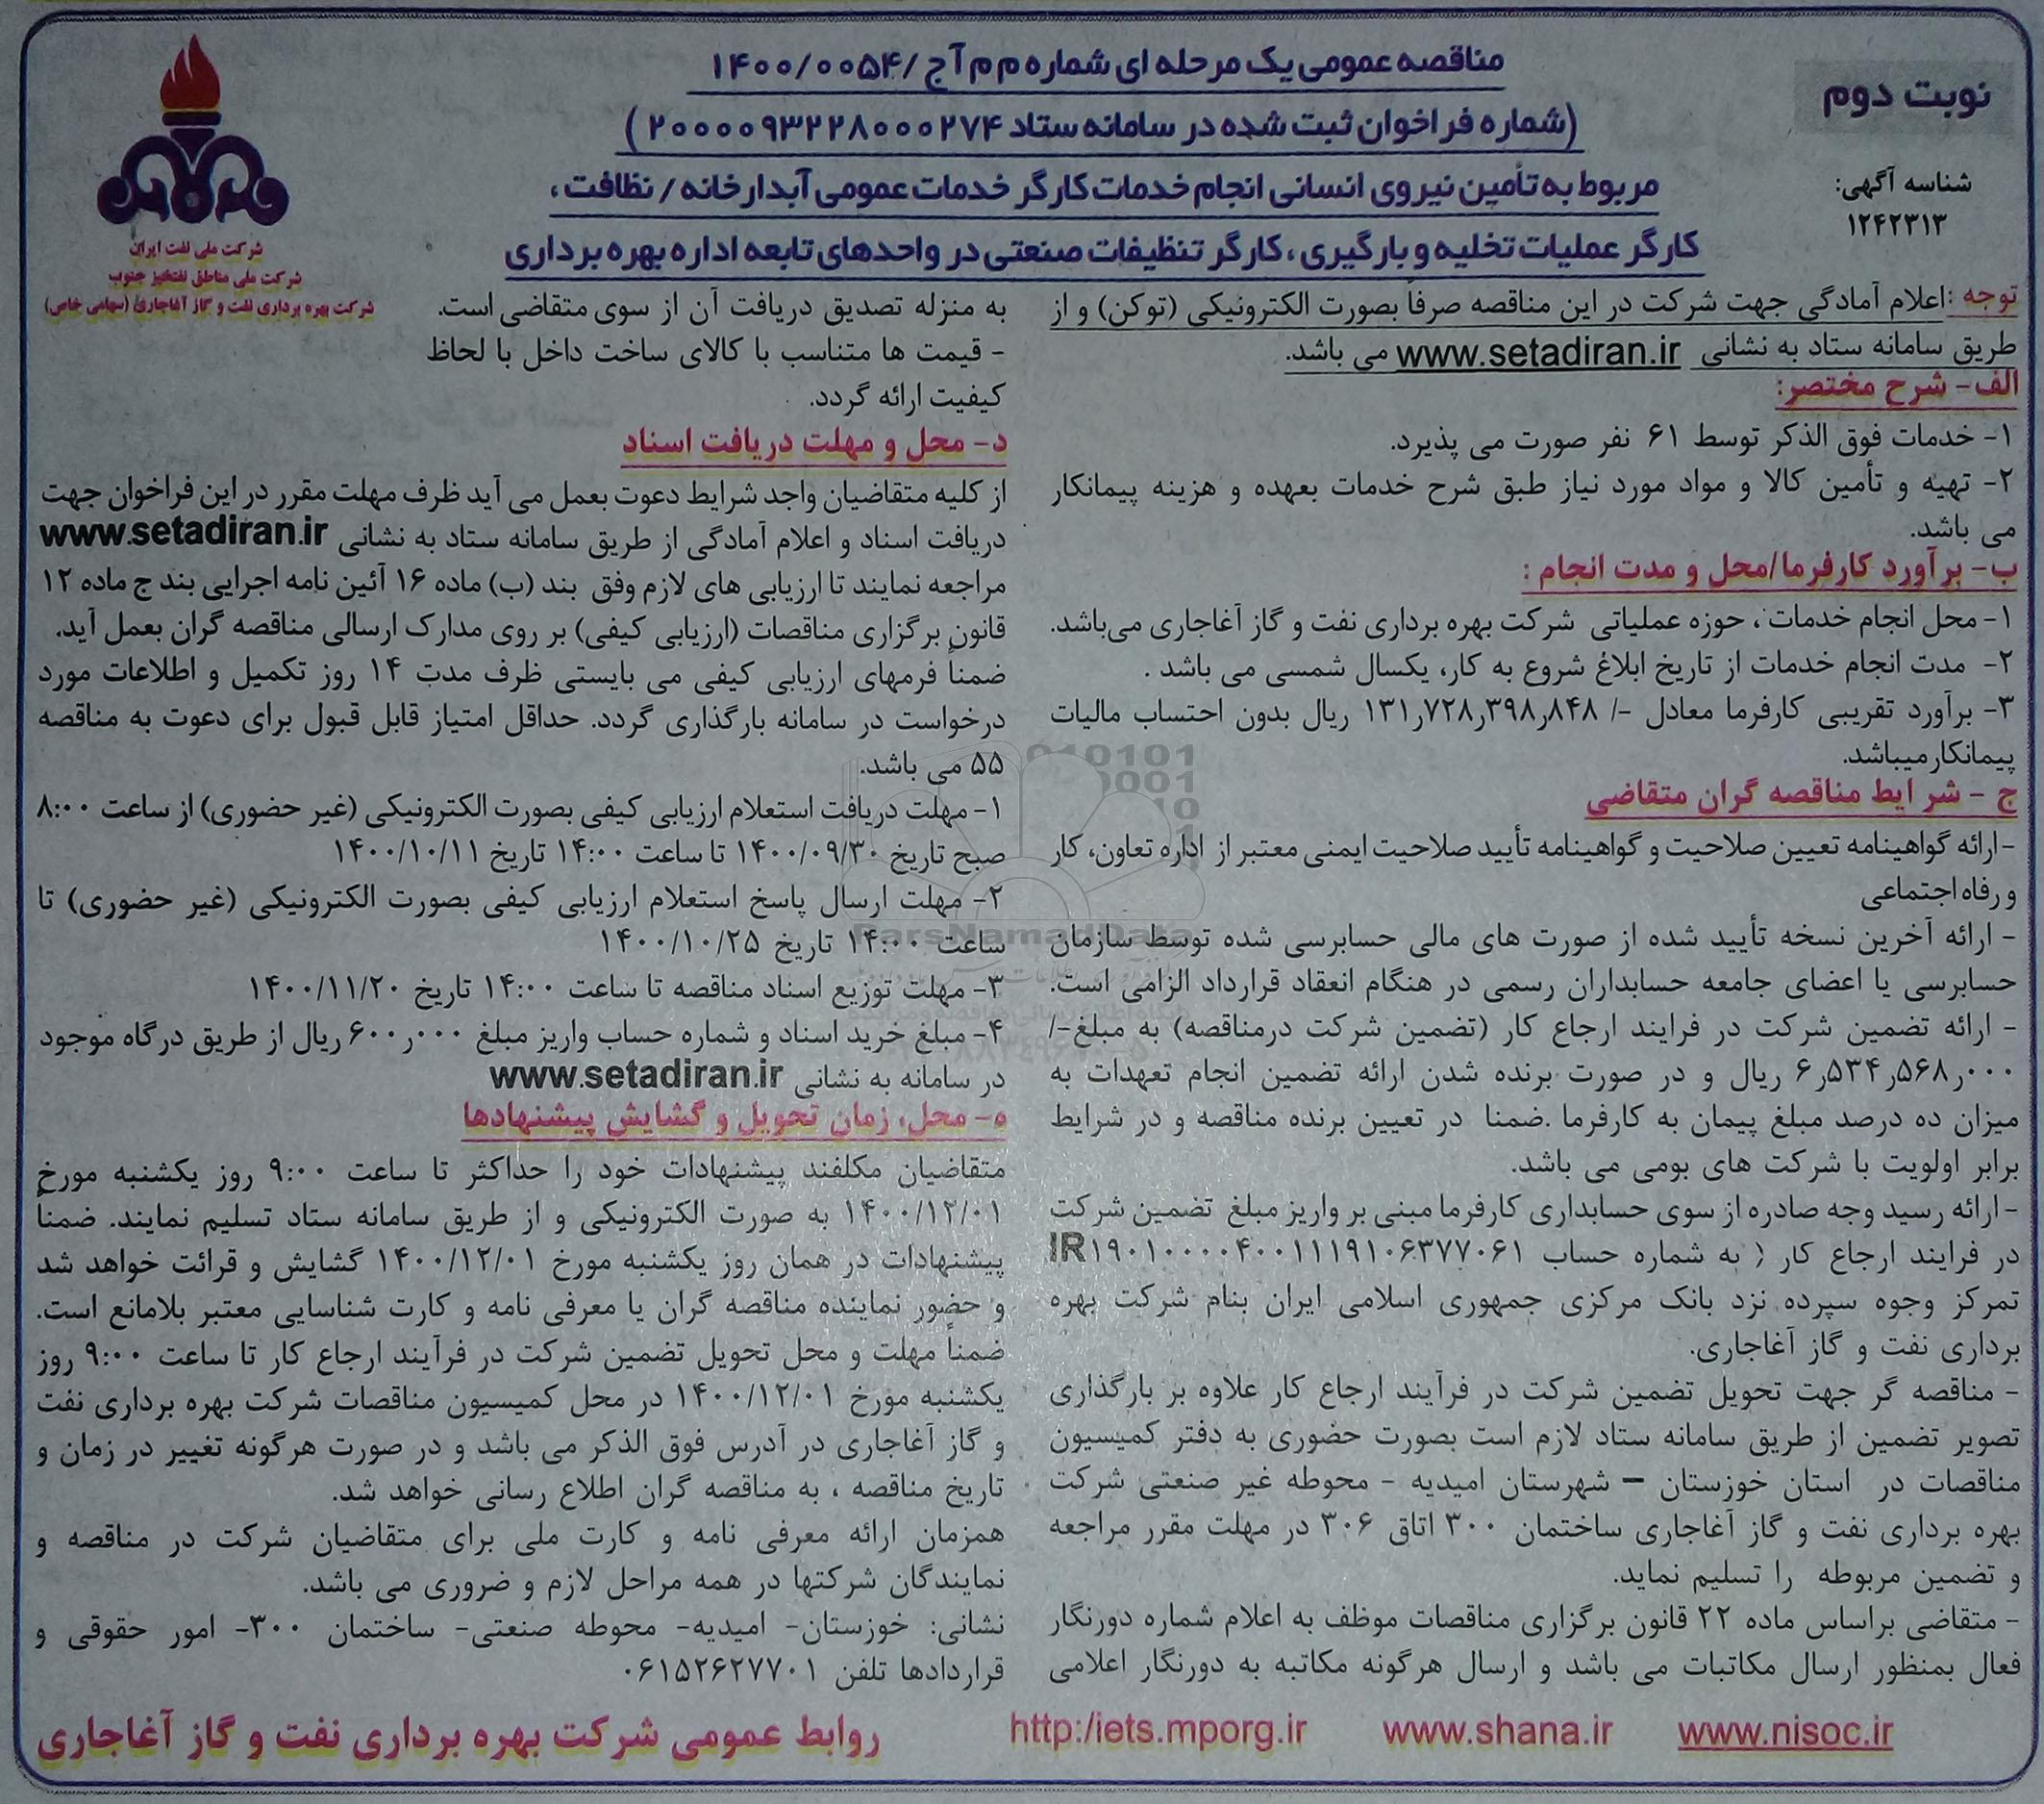 نوبت دوم
شناسه آگهی:
۱۲۴۲۳۱۳
مناقصه عمومی یک مرحله ای شماره م م آ ج /۱۴۰۰/۰۰۵۴
(شماره فراخوان ثبت شده در سامانه ستاد ۲۰۰۰۰۹۳۲۲۸۰۰۰۲۷۴ )
مربوط به تأمین نیروی انسانی انجام خدمات کارگر خدمات عمومی آبدارخانه / نظافت ،
کارگر عملیات تخلیه و بارگیری ، کارگر تنظیفات صنعتی در واحدهای تابعه اداره بهره برداری
شرکت ملی نفت ایران
شرکت ملی مناطق نفتخیز جنوب
شرکت بهره برداری نفت و گاز آغاجاری (سهامی خاص)
توجه :اعلام آمادگی جهت شرکت در این مناقصه صرفاً بصورت الکترونیکی (توکن) و از
طریق سامانه ستاد به نشانی www.setadiran.ir می باشد.
الف- شرح مختصر:
۱- خدمات فوق الذکر توسط ۶۱ نفر صورت می پذیرد.
۲- تهیه و تأمین کالا و مواد مورد نیاز طبق شرح خدمات بعهده و هزینه پیمانکار
می باشد.
ب- برآورد کارفرما/محل و مدت انجام :
۱- محل انجام خدمات ، حوزه عملیاتی شرکت بهره برداری نفت و گاز آغاجاری می‌باشد.
۲- مدت انجام خدمات از تاریخ ابلاغ شروع به کار، یکسال شمسی می باشد .
۳- برآورد تقریبی کارفرما معادل -/ ۱۳۱٫۷۲۸٫۳۹۸٫۸۴۸ ریال بدون احتساب مالیات
پیمانکار میباشد.
ج - شرایط مناقصه گران متقاضی
-ارائه گواهینامه تعیین صلاحیت و گواهینامه تأیید صلاحیت ایمنی معتبر از اداره تعاون، کار
و رفاه اجتماعی
- ارائه آخرین نسخه تأیید شده از صورت های مالی حسابرسی شده توسط سازمان
حسابرسی یا اعضای جامعه حسابداران رسمی در هنگام انعقاد قرارداد الزامی است.
- ارائه تضمین شرکت در فرایند ارجاع کار (تضمین شرکت درمناقصه) به مبلغ-/
۶٫۵۳۴٫۵۶۸٫۰۰۰ ریال و در صورت برنده شدن ارائه تضمین انجام تعهدات به
میزان ده درصد مبلغ پیمان به کارفرما .ضمنا در تعیین برنده مناقصه و در شرایط
برابر اولویت با شرکت های بومی می باشد.
-ارائه رسید وجه صادره از سوی حسابداری کارفرما مبنی بر واریز مبلغ تضمین شرکت
در فرایند ارجاع کار ( به شماره حساب IR۱۹۰۱۰۰۰۰۴۰۰۱۱۱۹۱۰۶۳۷۷۰۶۱
تمرکز وجوه سپرده نزد بانک مرکزی جمهوری اسلامی ایران بنام شرکت بهره
برداری نفت و گاز آغاجاری.
- مناقصه گر جهت تحویل تضمین شرکت در فرآیند ارجاع کار علاوه بر بارگذاری
تصویر تضمین از طریق سامانه ستاد لازم است بصورت حضوری به دفتر کمیسیون
مناقصات در استان خوزستان – شهرستان امیدیه - محوطه غیر صنعتی شرکت
بهره برداری نفت و گاز آغاجاری ساختمان ۳۰۰ اتاق ۳۰۶ در مهلت مقرر مراجعه
و تضمین مربوطه را تسلیم نماید.
- متقاضی براساس ماده ۲۲ قانون برگزاری مناقصات موظف به اعلام شماره دورنگار
فعال بمنظور ارسال مکاتبات می باشد و ارسال هرگونه مکاتبه به دورنگار اعلامی
به منزله تصدیق دریافت آن از سوی متقاضی است.
- قیمت ها متناسب با کالای ساخت داخل با لحاظ
کیفیت ارائه گردد.
د- محل و مهلت دریافت اسناد
از کلیه متقاضیان واجد شرایط دعوت بعمل می آید ظرف مهلت مقرر در این فراخوان جهت
دریافت اسناد و اعلام آمادگی از طریق سامانه ستاد به نشانی www.setadiran.ir
مراجعه نمایند تا ارزیابی های لازم وفق بند (ب) ماده ۱۶ آئین نامه اجرایی بند ج ماده ۱۲
قانون برگزاری مناقصات (ارزیابی کیفی) بر روی مدارک ارسالی مناقصه گران بعمل آید.
ضمناً فرمهای ارزیابی کیفی می بایستی ظرف مدت ۱۴ روز تکمیل و اطلاعات مورد
درخواست در سامانه بارگذاری گردد. حداقل امتیاز قابل قبول برای دعوت به مناقصه
۵۵ می باشد.
۱- مهلت دریافت استعلام ارزیابی کیفی بصورت الکترونیکی (غیر حضوری) از ساعت ۸:۰۰
صبح تاریخ ۱۴۰۰/۰۹/۳۰ تا ساعت ۱۴:۰۰ تاریخ ۱۴۰۰/۱۰/۱۱
۲- مهلت ارسال پاسخ استعلام ارزیابی کیفی بصورت الکترونیکی (غیر حضوری) تا
ساعت ۱۴:۰۰ تاریخ ۱۴۰۰/۱۰/۲۵
۳- مهلت توزیع اسناد مناقصه تا ساعت ۱۴:۰۰ تاریخ ۱۴۰۰/۱۱/۲۰
۴- مبلغ خرید اسناد و شماره حساب واریز مبلغ ۶۰۰٫۰۰۰ ریال از طریق درگاه موجود
در سامانه به نشانی www.setadiran.ir
ه- محل، زمان تحویل و گشایش پیشنهادها
متقاضیان مکلفند پیشنهادات خود را حداکثر تا ساعت ۹:۰۰ روز یکشنبه مورخ
۱۴۰۰/۱۲/۰۱ به صورت الکترونیکی و از طریق سامانه ستاد تسلیم نمایند. ضمناً
پیشنهادات در همان روز یکشنبه مورخ ۱۴۰۰/۱۲/۰۱ گشایش و قرائت خواهد شد
و حضور نماینده مناقصه گران یا معرفی نامه و کارت شناسایی معتبر بلامانع است.
ضمناً مهلت و محل تحویل تضمین شرکت در فرآیند ارجاع کار تا ساعت ۹:۰۰ روز
یکشنبه مورخ ۱۴۰۰/۱۲/۰۱ در محل کمیسیون مناقصات شرکت بهره برداری نفت
و گاز آغاجاری در آدرس فوق الذکر می باشد و در صورت هرگونه تغییر در زمان و
تاریخ مناقصه ، به مناقصه گران اطلاع رسانی خواهد شد.
همزمان ارائه معرفی نامه و کارت ملی برای متقاضیان شرکت در مناقصه و
نمایندگان شرکتها در همه مراحل لازم و ضروری می باشد.
نشانی: خوزستان- امیدیه- محوطه صنعتی- ساختمان ۳۰۰- امور حقوقی و
قراردادها تلفن ۰۶۱۵۲۶۲۷۷۰۱
www.nisoc.ir www.shana.ir http:/iets.mporg.ir روابط عمومی شرکت بهره برداری نفت و گاز آغاجاری
ParsNamadData